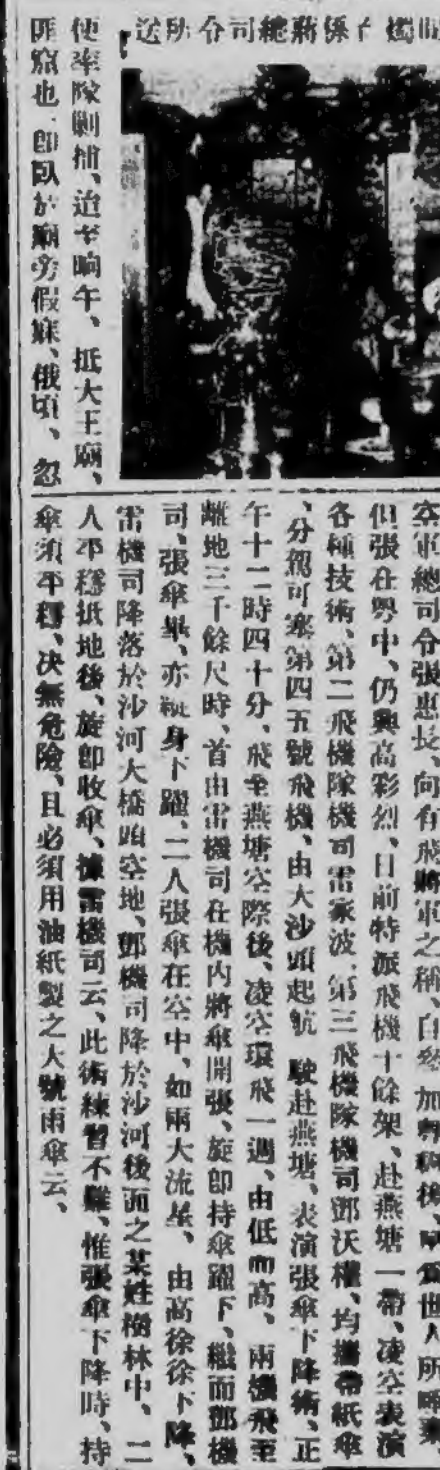 燭子係蔣總司令所送
使率隊剿捕、迨至晌午、抵大王廟、
匪窟也、卽臥於廟旁假寐、俄頃、忽
空軍總司令張惠長、向有飛將軍之稱、自參加粵後、世人所
但張在粵中、仍興高彩烈、日前特派飛機十餘架、赴燕塘一帶、凌空表演
各種技術、第二飛機隊機司雷家波、第三飛機隊機司鄧沃權、均攜帶紙傘
、分駕可塞第四五號飛機、由大沙頭起航 駛赴燕塘、表演張傘下降術、正
午十二時四十分、飛至燕塘空際後、凌空環飛一週、由低而高、兩機飛至
離地三千餘尺時、首由雷機司在機內將傘開張、旋卽持傘躍下、繼而鄧機
司、張傘畢、亦縱身下躍、二人張傘在空中、如兩大流星、由高徐徐下降、
雷機司降落於沙河大橋頭空地、鄧機司降於沙河後面之某姓樹林中、二
人平穩抵地後、旋卽收傘、據雷機司云、此術練習不難、惟張傘下降時、持
傘須平穩、决無危險、且必須用油紙製之大號雨傘云、